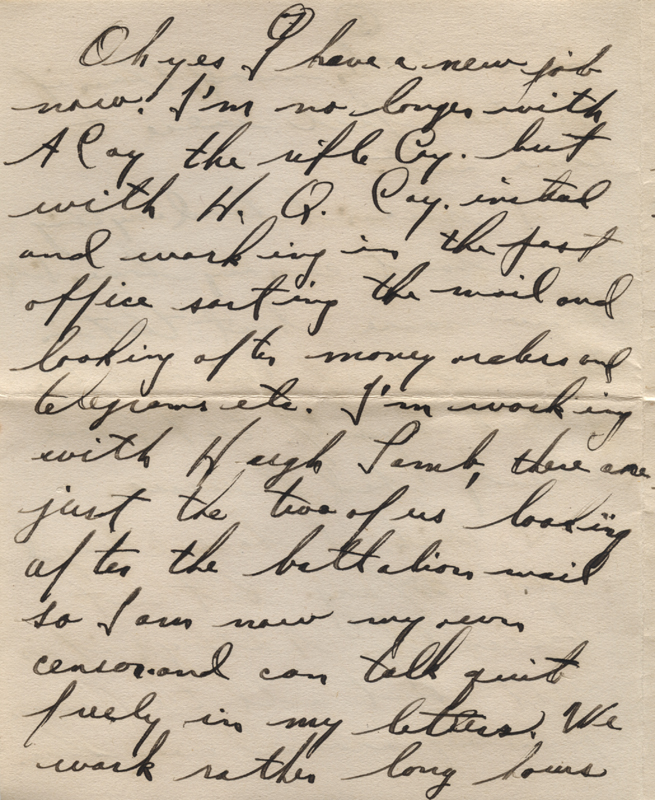 Oh yes I have a new job
now! I'm no longer with
A Coy the rifle Coy. but
with H. Q. Coy. insted
and working in the post
office sorting the mail and
looking after money orders and
telegrams etc. I'm working
with Hugh Lamb, there are
just the two of us looking
after the battalion mail
so I am now my own
censor and can talk quit
freely in my letters. We
work rather long hours